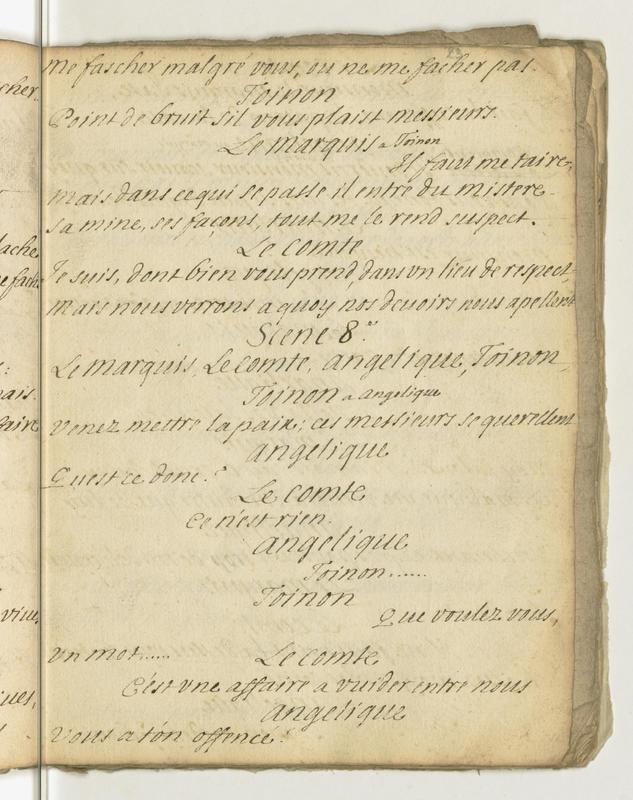 me fascher malgré vous, ou ne me facher pas.
Toinon
Point de bruit s'il vous plaist messieurs.
Le marquis a Toinon
Il faut me taire,
mais dans ce qui se passe il entre du mistere
sa mine, ses façons, tout me le rend suspect.
Le comte
Je suis, dont bien vous prend, dans vn lieu de respect,
mais nous verrons a quoy nos devoirs nous apellent
Scene 8.e
Le marquis, Le comte, angelique, Toinon
Toinon a angelique
venez mettre la paix; ces messieurs se querellent
angelique
Qu'est ce donc?
Le comte
ce n'est rien.
angelique
Toinon......
Toinon
Que voulez vous,
vn mot.....
Le comte
C'est vne affaire a vuider entre nous
angelique
vous a t'on offencé?